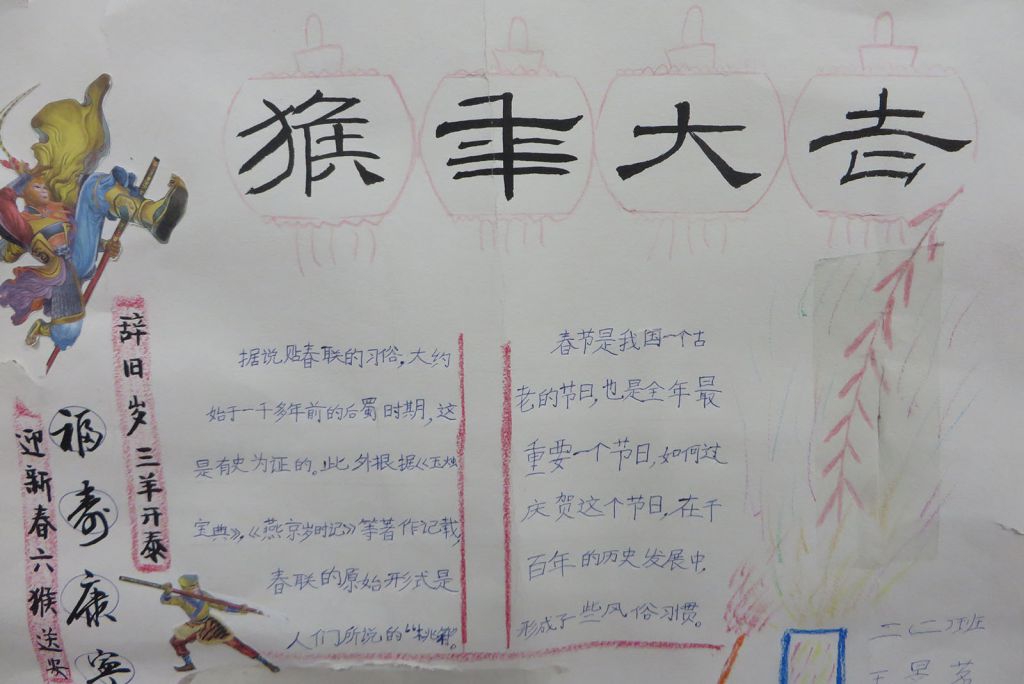 猴年大吉
辞旧岁三羊开泰
迎新春六猴送安
福寿康寧
据说贴春联的习俗,大约
始于一千多年前的后蜀时期,这
是有史为证的。此外根据《玉烛
宝典》,《燕京岁时记》等著作记载,
春联的原始形式是
人们所说的“桃符”。
春节是我国一个古
老的节日,也是全年最
重要一个节日,如何过
庆贺这个节日,在千
百年的历史发展中,
形成了一些风俗习惯。
二(二)班
王思茗